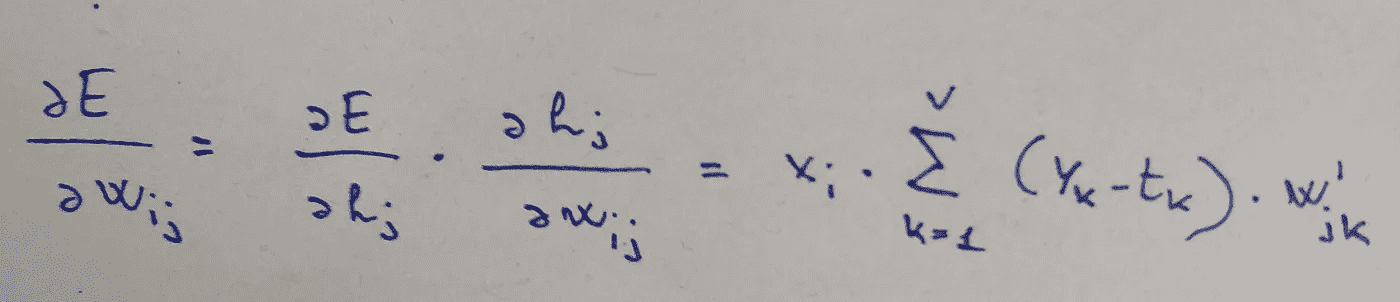 ∂E/∂w_ij = ∂E/∂h_j · ∂h_j/∂w_ij = x_i · ∑_{k=1}^{V} (y_k - t_k) · w'_jk